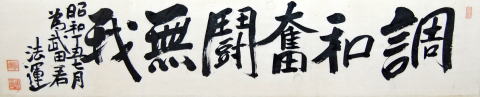 調和奮鬪無我
昭和丁丑七月
為武田君
法運